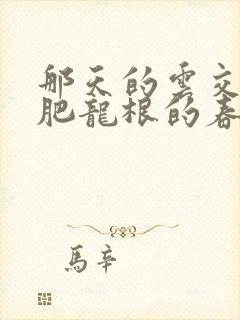 那天的雲交
肥龍根的春
馬辛